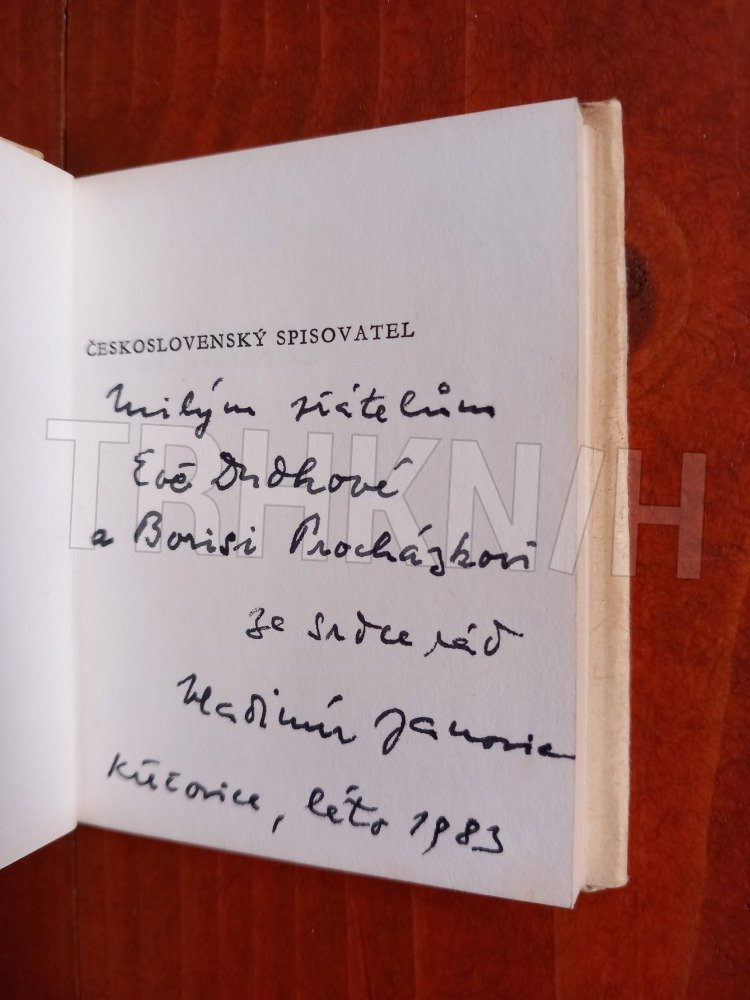 ČESKOSLOVENSKÝ SPISOVATEL
Milým přátelům
Evě Dudkové
a Borisi Procházkovi
ze srdce rád
Vladimír Janovic
Křečovice, léto 1983
TRHKNIH